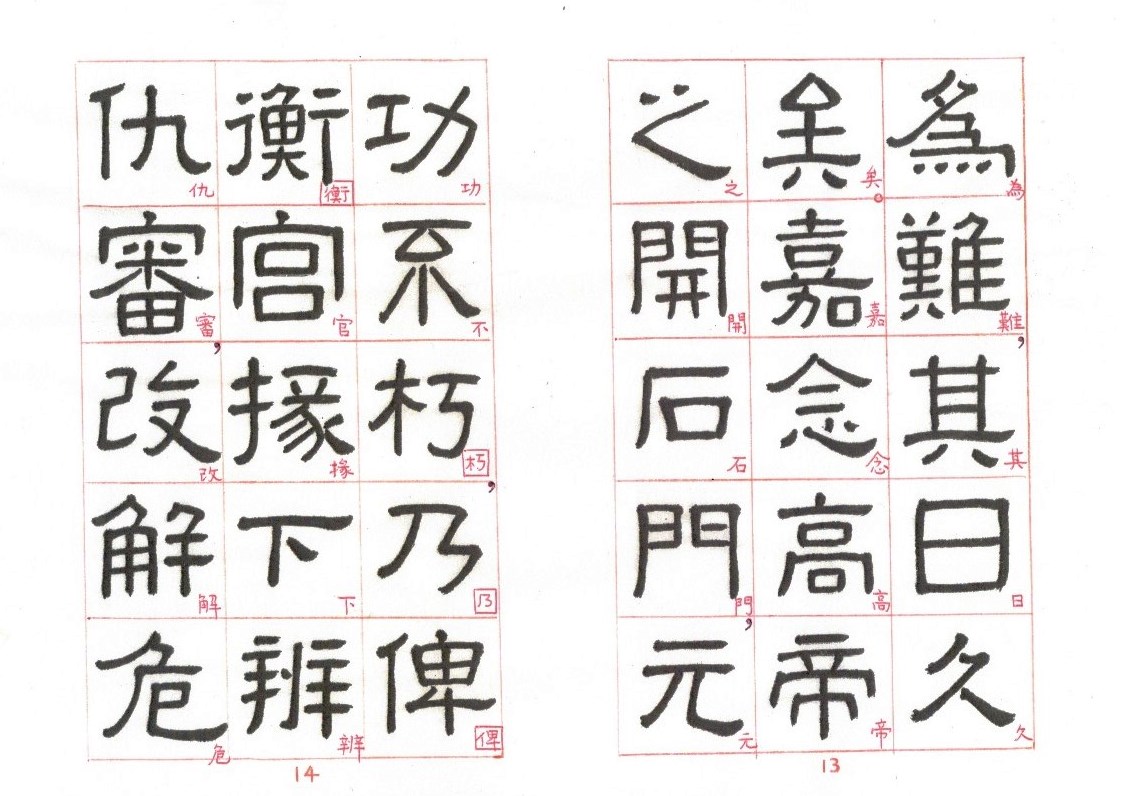 為難其日久
為難，其日久
矣嘉念高帝
矣。嘉念高帝
之開石門元
之開石門，元
13
功不朽乃俾
功不朽，乃俾
衡官掾下辨
衡官掾下辨
仇審改解危
仇審，改解危
14